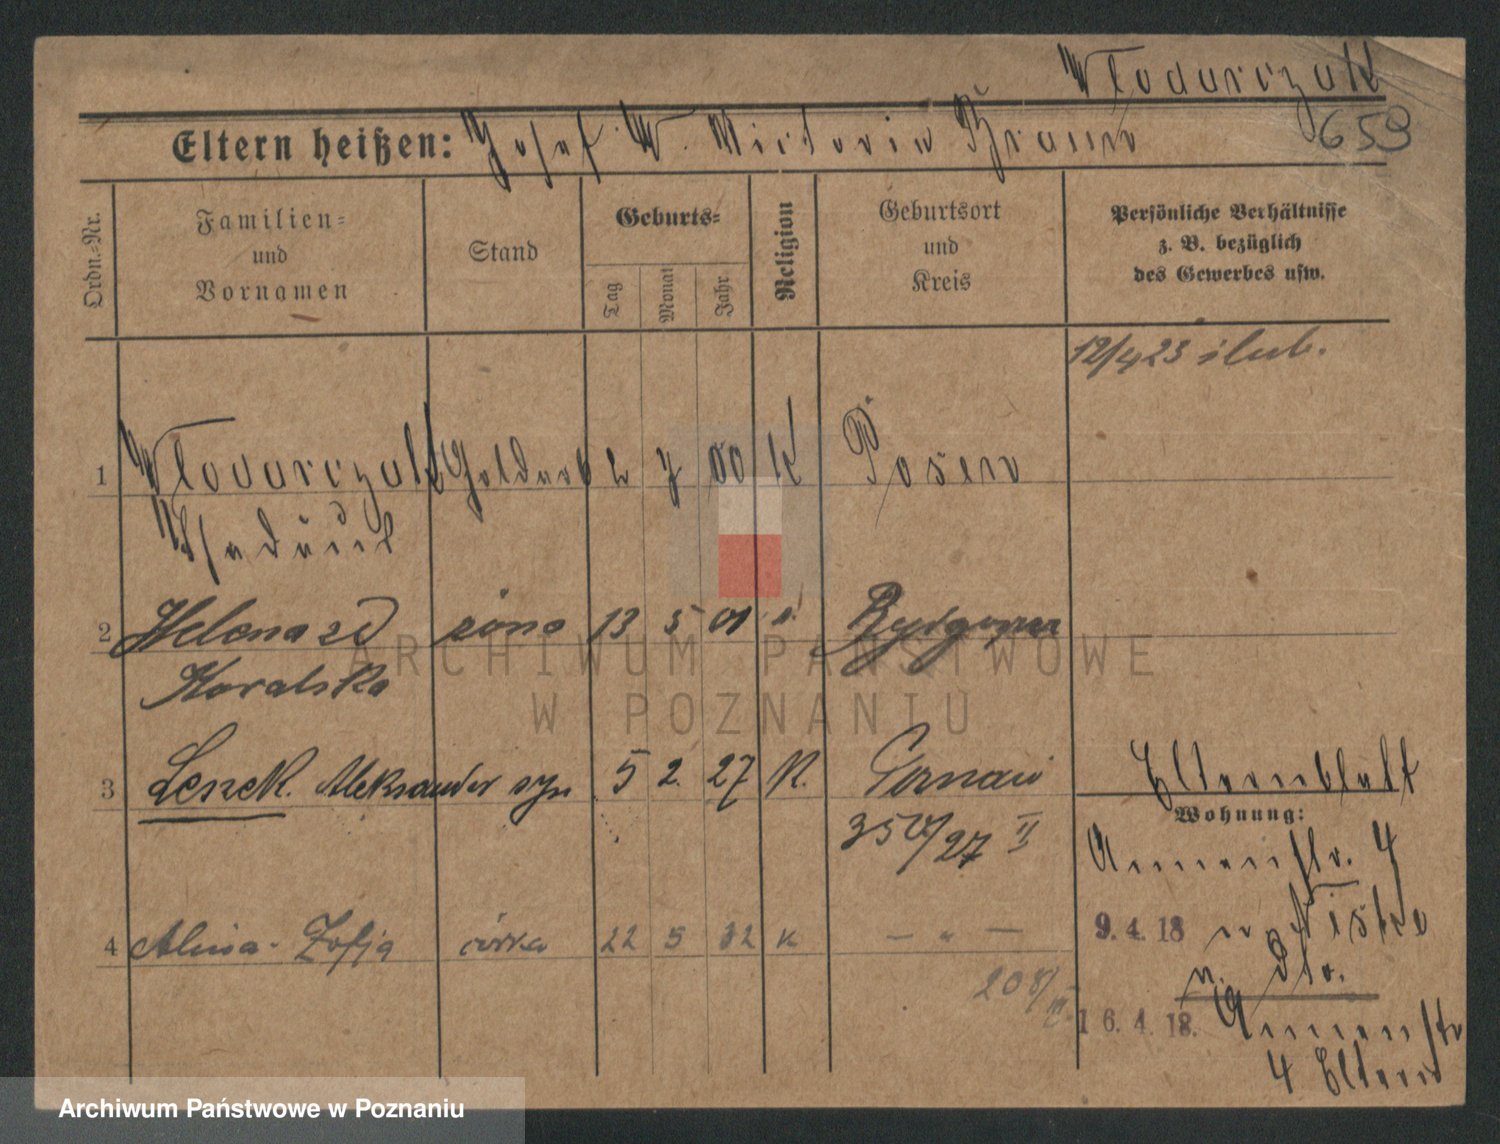 Włodarczak
659
Eltern heißen: Josef W. Victoria Braun
Ordn.-Nr.
Familien-
und
Vornamen
Stand
Geburts-
Tag
Monat
Jahr
Religion
Geburtsort
und
Kreis
Persönliche Verhältnisse
z. B. bezüglich
des Gewerbes usw.
12/4 23 ślub.
1 Włodarczak 2 7 00 K Posen
Thadäus
2 Helena zd żona 13 5 01 k. Bydgoszcz
Kowalska
3 Leszek Aleksander syn 5 2 27 K. Poznań
27 II
4 Alina-Zofja córka 22 5 32 K — " —
208/
Elternblatt
Wohnung:
Annenstr. 4
9. 4. 18 n.
n. dto.
16. 4. 18. Annenstr
4 Eltern
ARCHIWUM PAŃSTWOWE
W POZNANIU
Archiwum Państwowe w Poznaniu